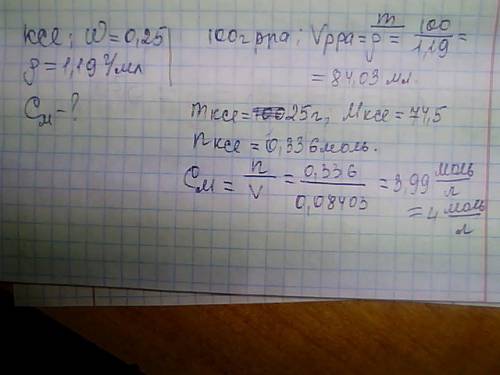 KCl; ω = 0,25
ρ = 1,19 г/мл
Cм - ?
100г рра; Vрра = m/ρ = 100/1,19 =
= 84,03 мл.
mKCl = 25г, MKCl = 74,5
nKCl = 0,336 моль.
Cм = n/V = 0,336/0,08403 = 3,99 моль/л
= 4 моль/л